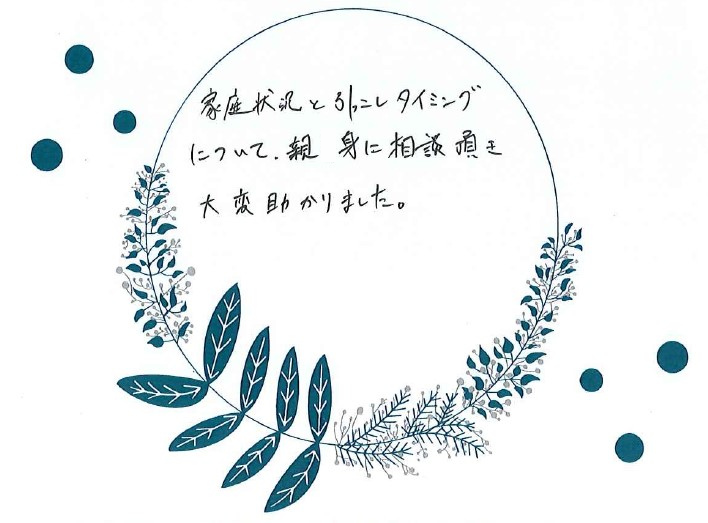 家庭状況と引っこしタイミング
について、親身に相談頂き
大変助かりました。